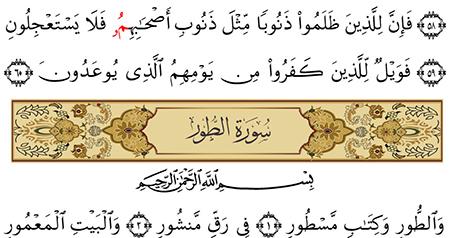 ﴿٥٨﴾ فَإِنَّ لِلَّذِينَ ظَلَمُواْ ذَنُوبٗا مِّثۡلَ ذَنُوبِ أَصۡحَٰبِهِمُۥ فَلَا يَسۡتَعۡجِلُونِ
﴿٥٩﴾ فَوَيۡلٞ لِّلَّذِينَ كَفَرُواْ مِن يَوۡمِهِمُ ٱلَّذِي يُوعَدُونَ ﴿٦٠﴾
سُورَةُ الطُّورِ
بِسْمِ ٱللَّهِ ٱلرَّحْمَٰنِ ٱلرَّحِيمِ
وَٱلطُّورِ وَكِتَٰبٖ مَّسۡطُورٖ ﴿١﴾ فِي رَقّٖ مَّنشُورٖ ﴿٢﴾ وَٱلۡبَيۡتِ ٱلۡمَعۡمُورِ